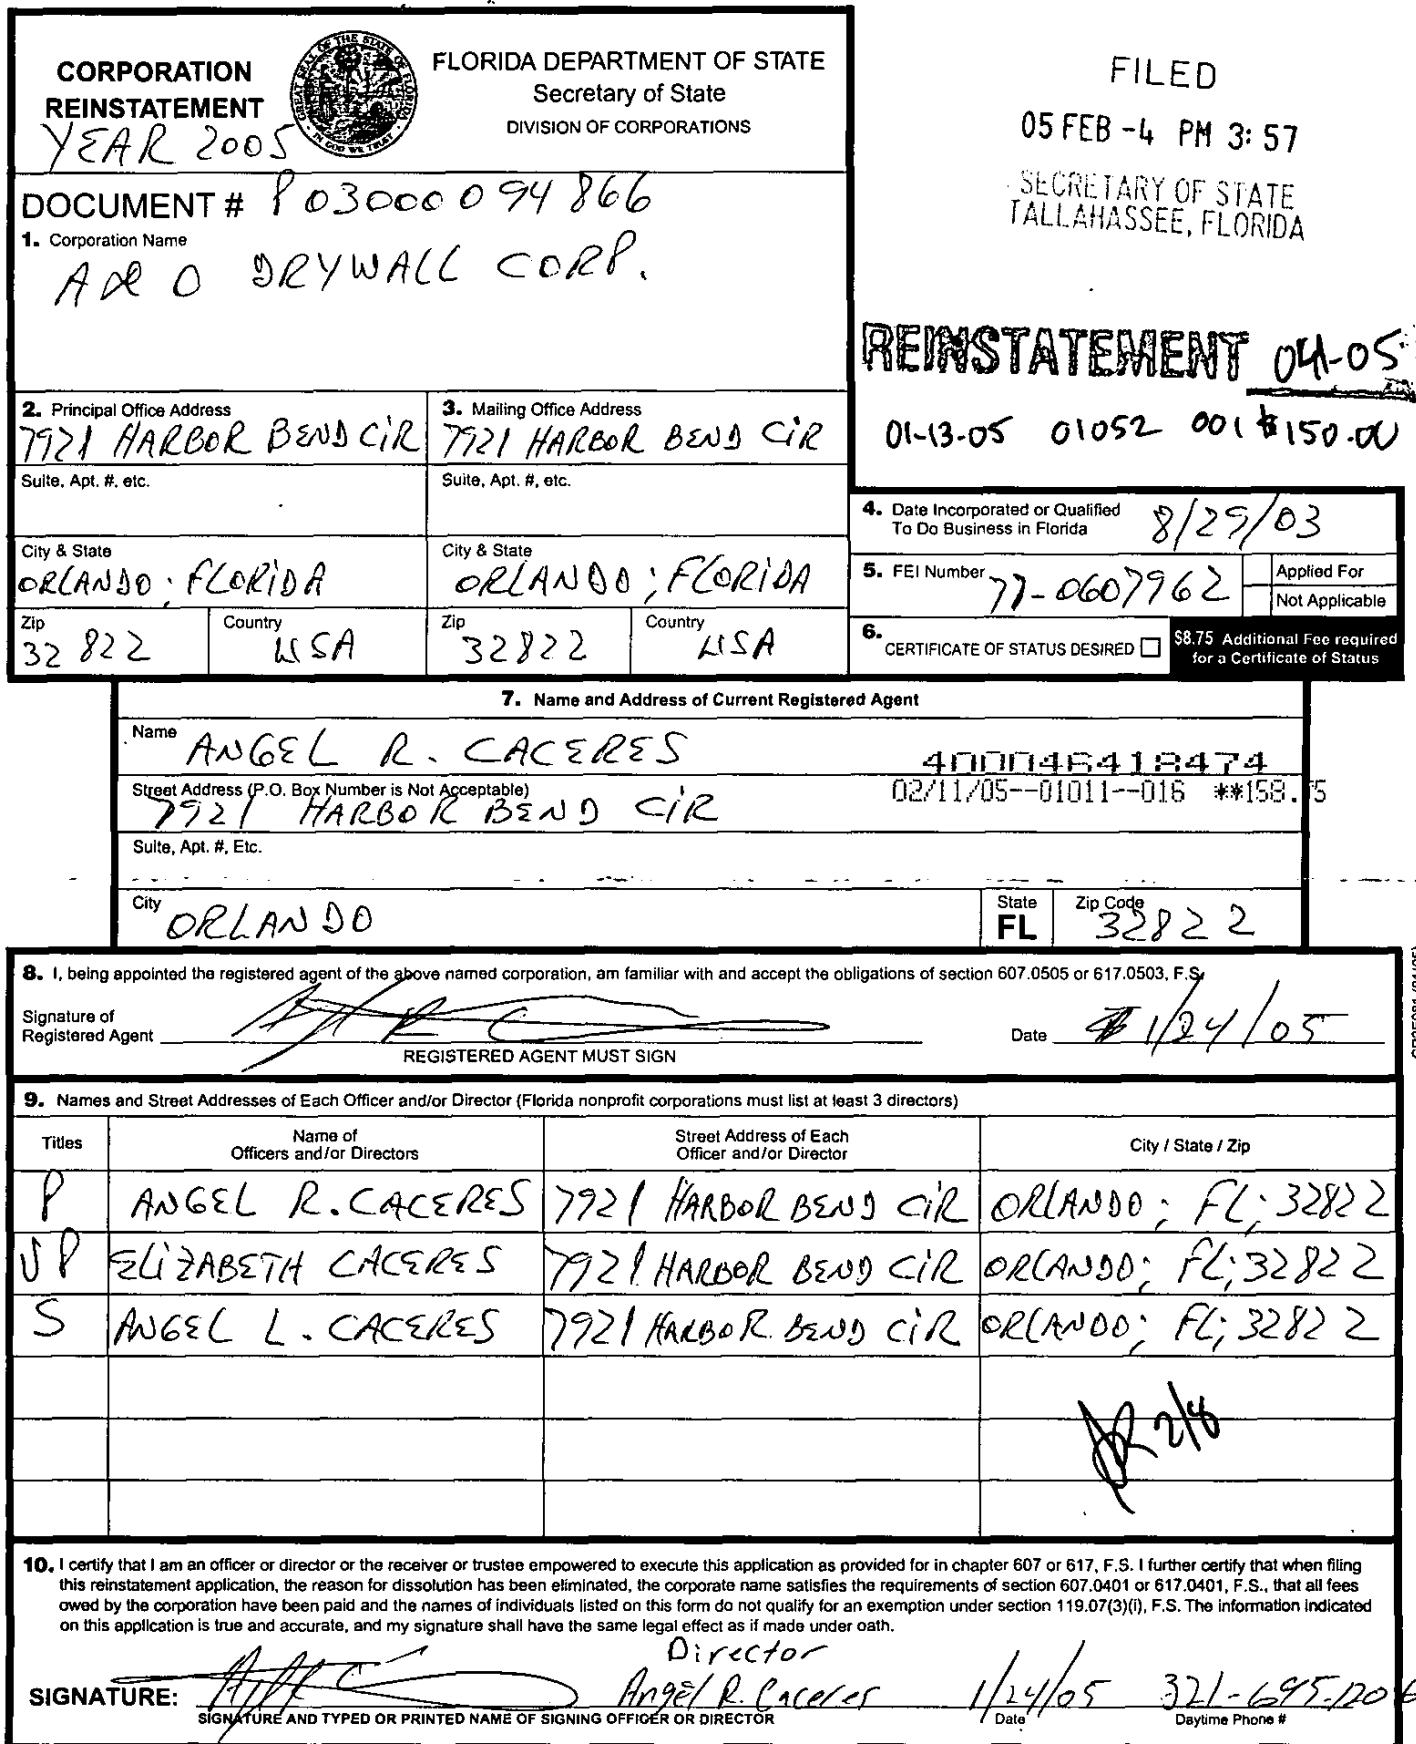 CORPORATION
REINSTATEMENT
YEAR 2005
FLORIDA DEPARTMENT OF STATE
Secretary of State
DIVISION OF CORPORATIONS
FILED
05 FEB -4 PM 3:57
SECRETARY OF STATE
TALLAHASSEE, FLORIDA
DOCUMENT # P03000094866
1. Corporation Name
A & O DRYWALL CORP.
REINSTATEMENT 04-05
01-13-05 01052 001 $150.00
2. Principal Office Address
7921 HARBOR BEND CiR
3. Mailing Office Address
7921 HARBOR BEND CiR
Suite, Apt. #, etc.
Suite, Apt. #, etc.
City & State
ORLANDO; FLORiDA
City & State
ORLANDO; FLORiDA
Zip
32822
Country
USA
Zip
32822
Country
USA
4. Date Incorporated or Qualified
To Do Business in Florida
8/29/03
5. FEI Number
77-0607962
Applied For
Not Applicable
6. CERTIFICATE OF STATUS DESIRED
$8.75 Additional Fee required
for a Certificate of Status
7. Name and Address of Current Registered Agent
Name
ANGEL R. CACERES
400046418474
02/11/05--01011--016 **158.75
Street Address (P.O. Box Number is Not Acceptable)
7921 HARBOR BEND CiR
Suite, Apt. #, Etc.
City
ORLANDO
State
FL
Zip Code
32822
8. I, being appointed the registered agent of the above named corporation, am familiar with and accept the obligations of section 607.0505 or 617.0503, F.S.
Signature of
Registered Agent
REGISTERED AGENT MUST SIGN
Date 1/24/05
9. Names and Street Addresses of Each Officer and/or Director (Florida nonprofit corporations must list at least 3 directors)
Titles
Name of
Officers and/or Directors
Street Address of Each
Officer and/or Director
City / State / Zip
P ANGEL R. CACERES 7921 HARBOR BEND CiR ORLANDO; FL; 32822
VP ELiZABETH CACERES 7921 HARBOR BEND CiR ORLANDO; FL; 32822
S ANGEL L. CACERES 7921 HARBOR BEND CiR ORLANDO; FL; 32822
2/8
10. I certify that I am an officer or director or the receiver or trustee empowered to execute this application as provided for in chapter 607 or 617, F.S. I further certify that when filing
this reinstatement application, the reason for dissolution has been eliminated, the corporate name satisfies the requirements of section 607.0401 or 617.0401, F.S., that all fees
owed by the corporation have been paid and the names of individuals listed on this form do not qualify for an exemption under section 119.07(3)(i), F.S. The information indicated
on this application is true and accurate, and my signature shall have the same legal effect as if made under oath.
Director
SIGNATURE: Angel R. Caceres 1/24/05 321-695-1206
SIGNATURE AND TYPED OR PRINTED NAME OF SIGNING OFFICER OR DIRECTOR
Date
Daytime Phone #